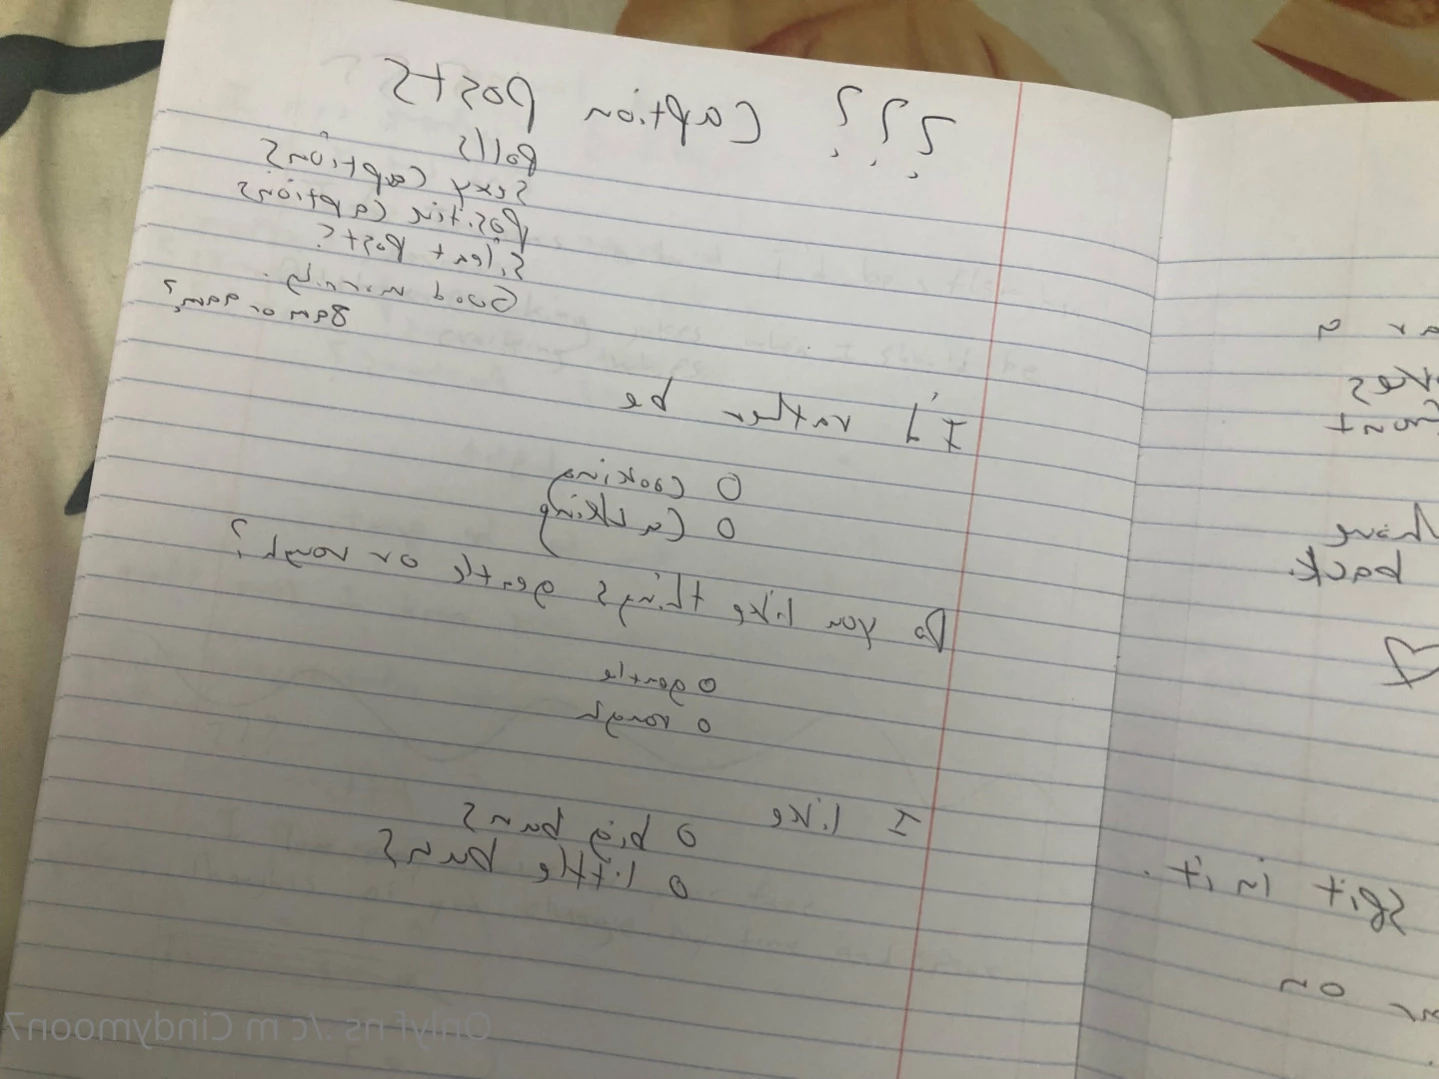 ??? Caption posts
Polls
Sexy Captions
Positive Captions
Silent posts
Good morning.
8am or 9am?
I'd rather be
O Cooking
O Caulking
Do you like things gentle or rough?
O gentle
O rough
I like O big buns
O little buns
ar a
yes
want
hang
back.
Spit in it.
on
Cindymoon7